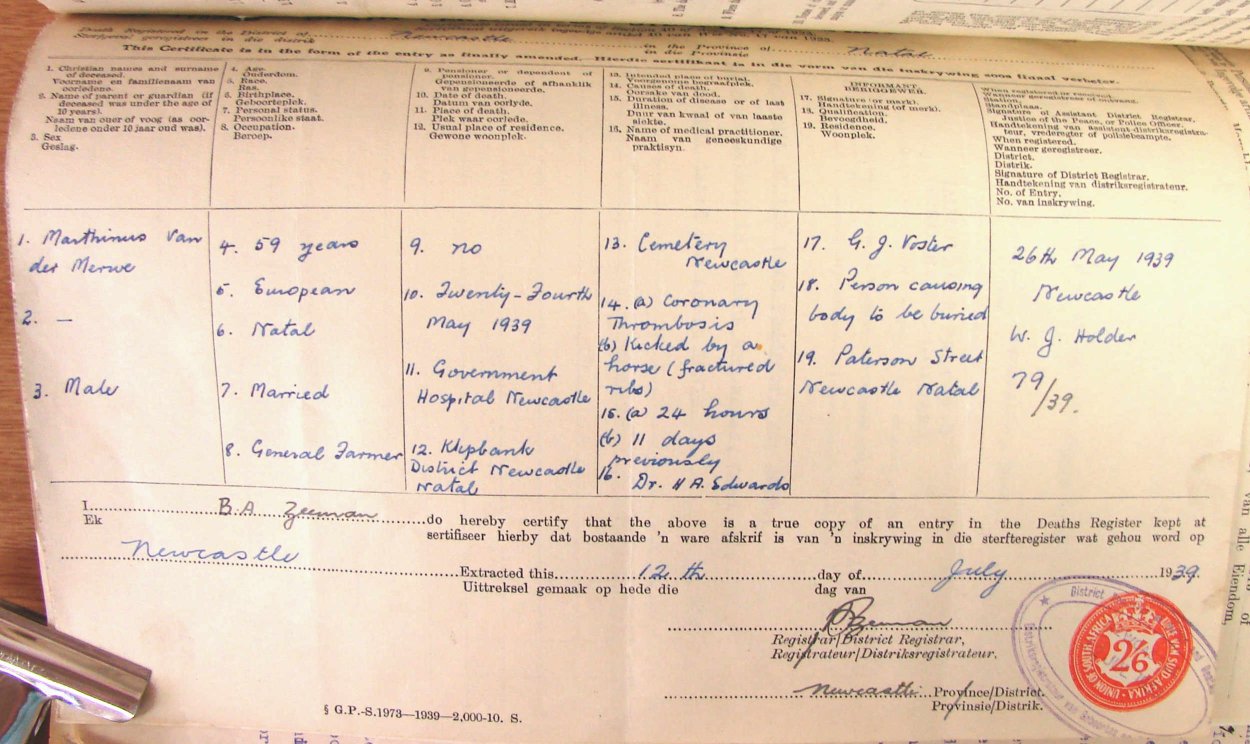 Death Registered in the District of Newcastle in the Province of Natal
Sterfgeval geregistreer in die distrik in die Provinsie
This Certificate is in the form of the entry as finally amended. Hierdie sertifikaat is in die vorm van die inskrywing soos finaal verbeter.
1. Christian names and surname
of deceased.
Voorname en familienaam van
oorledene.
2. Name of parent or guardian (if
deceased was under the age of
10 years).
Naam van ouer of voog (as oor-
ledene onder 10 jaar oud was).
3. Sex
Geslag.
4. Age.
Ouderdom.
5. Race.
Ras.
6. Birthplace.
Geboorteplek.
7. Personal status.
Persoonlike staat.
8. Occupation.
Beroep.
9. Pensioner or dependent of
pensioner.
Gepensioneerde of afhanklik
van gepensioneerde.
10. Date of death.
Datum van oorlyde.
11. Place of death.
Plek waar oorlede.
12. Usual place of residence.
Gewone woonplek.
13. Intended place of burial.
Voorgenome begraafplek.
14. Causes of death.
Oorsake van dood.
15. Duration of disease or of last
illness.
Duur van kwaal of van laaste
siekte.
16. Name of medical practitioner.
Naam van geneeskundige
praktisyn.
INFORMANT.
BERIGGEWER.
17. Signature (or mark).
Handtekening (of merk).
18. Qualification.
Bevoegdheid.
19. Residence.
Woonplek.
When registered or received.
Wanneer geregistreer of ontvang.
Station.
Standplaas.
Signature of Assistant District Registrar,
Justice of the Peace, or Police Officer.
Handtekening van assistent-distriksregistra-
teur, vrederegter of polisiebeampte.
When registered.
Wanneer geregistreer.
District.
Distrik.
Signature of District Registrar.
Handtekening van distriksregistrateur.
No. of Entry.
No. van inskrywing.
1. Marthinus Van
der Merwe
2. —
3. Male
4. 59 years
5. European
6. Natal
7. Married
8. General Farmer
9. no
10. Twenty-Fourth
May 1939
11. Government
Hospital Newcastle
12. Klipbank
District Newcastle
Natal
13. Cemetery
Newcastle
14. (a) Coronary
Thrombosis
(b) Kicked by a
horse (fractured
ribs)
15. (a) 24 hours
(b) 11 days
previously
16. Dr. H A. Edwards
17. G. J. Voster
18. Person causing
body to be buried
19. Paterson Street
Newcastle Natal
26th May 1939
Newcastle
W. J. Holder
79/39.
I B.A. Zeeman do hereby certify that the above is a true copy of an entry in the Deaths Register kept at
Ek sertifiseer hierby dat bostaande 'n ware afskrif is van 'n inskrywing in die sterfteregister wat gehou word op
Newcastle
Extracted this 12th day of July 1939
Uittreksel gemaak op hede die dag van
BZeeman
Registrar/District Registrar.
Registrateur/Distriksregistrateur.
Newcastle Province/District.
Provinsie/Distrik.
§ G.P.-S.1973—1939—2,000-10. S.
UNION OF SOUTH AFRICA
UNIE VAN SUID AFRIKA
2/6
District
van alle Eiendom,